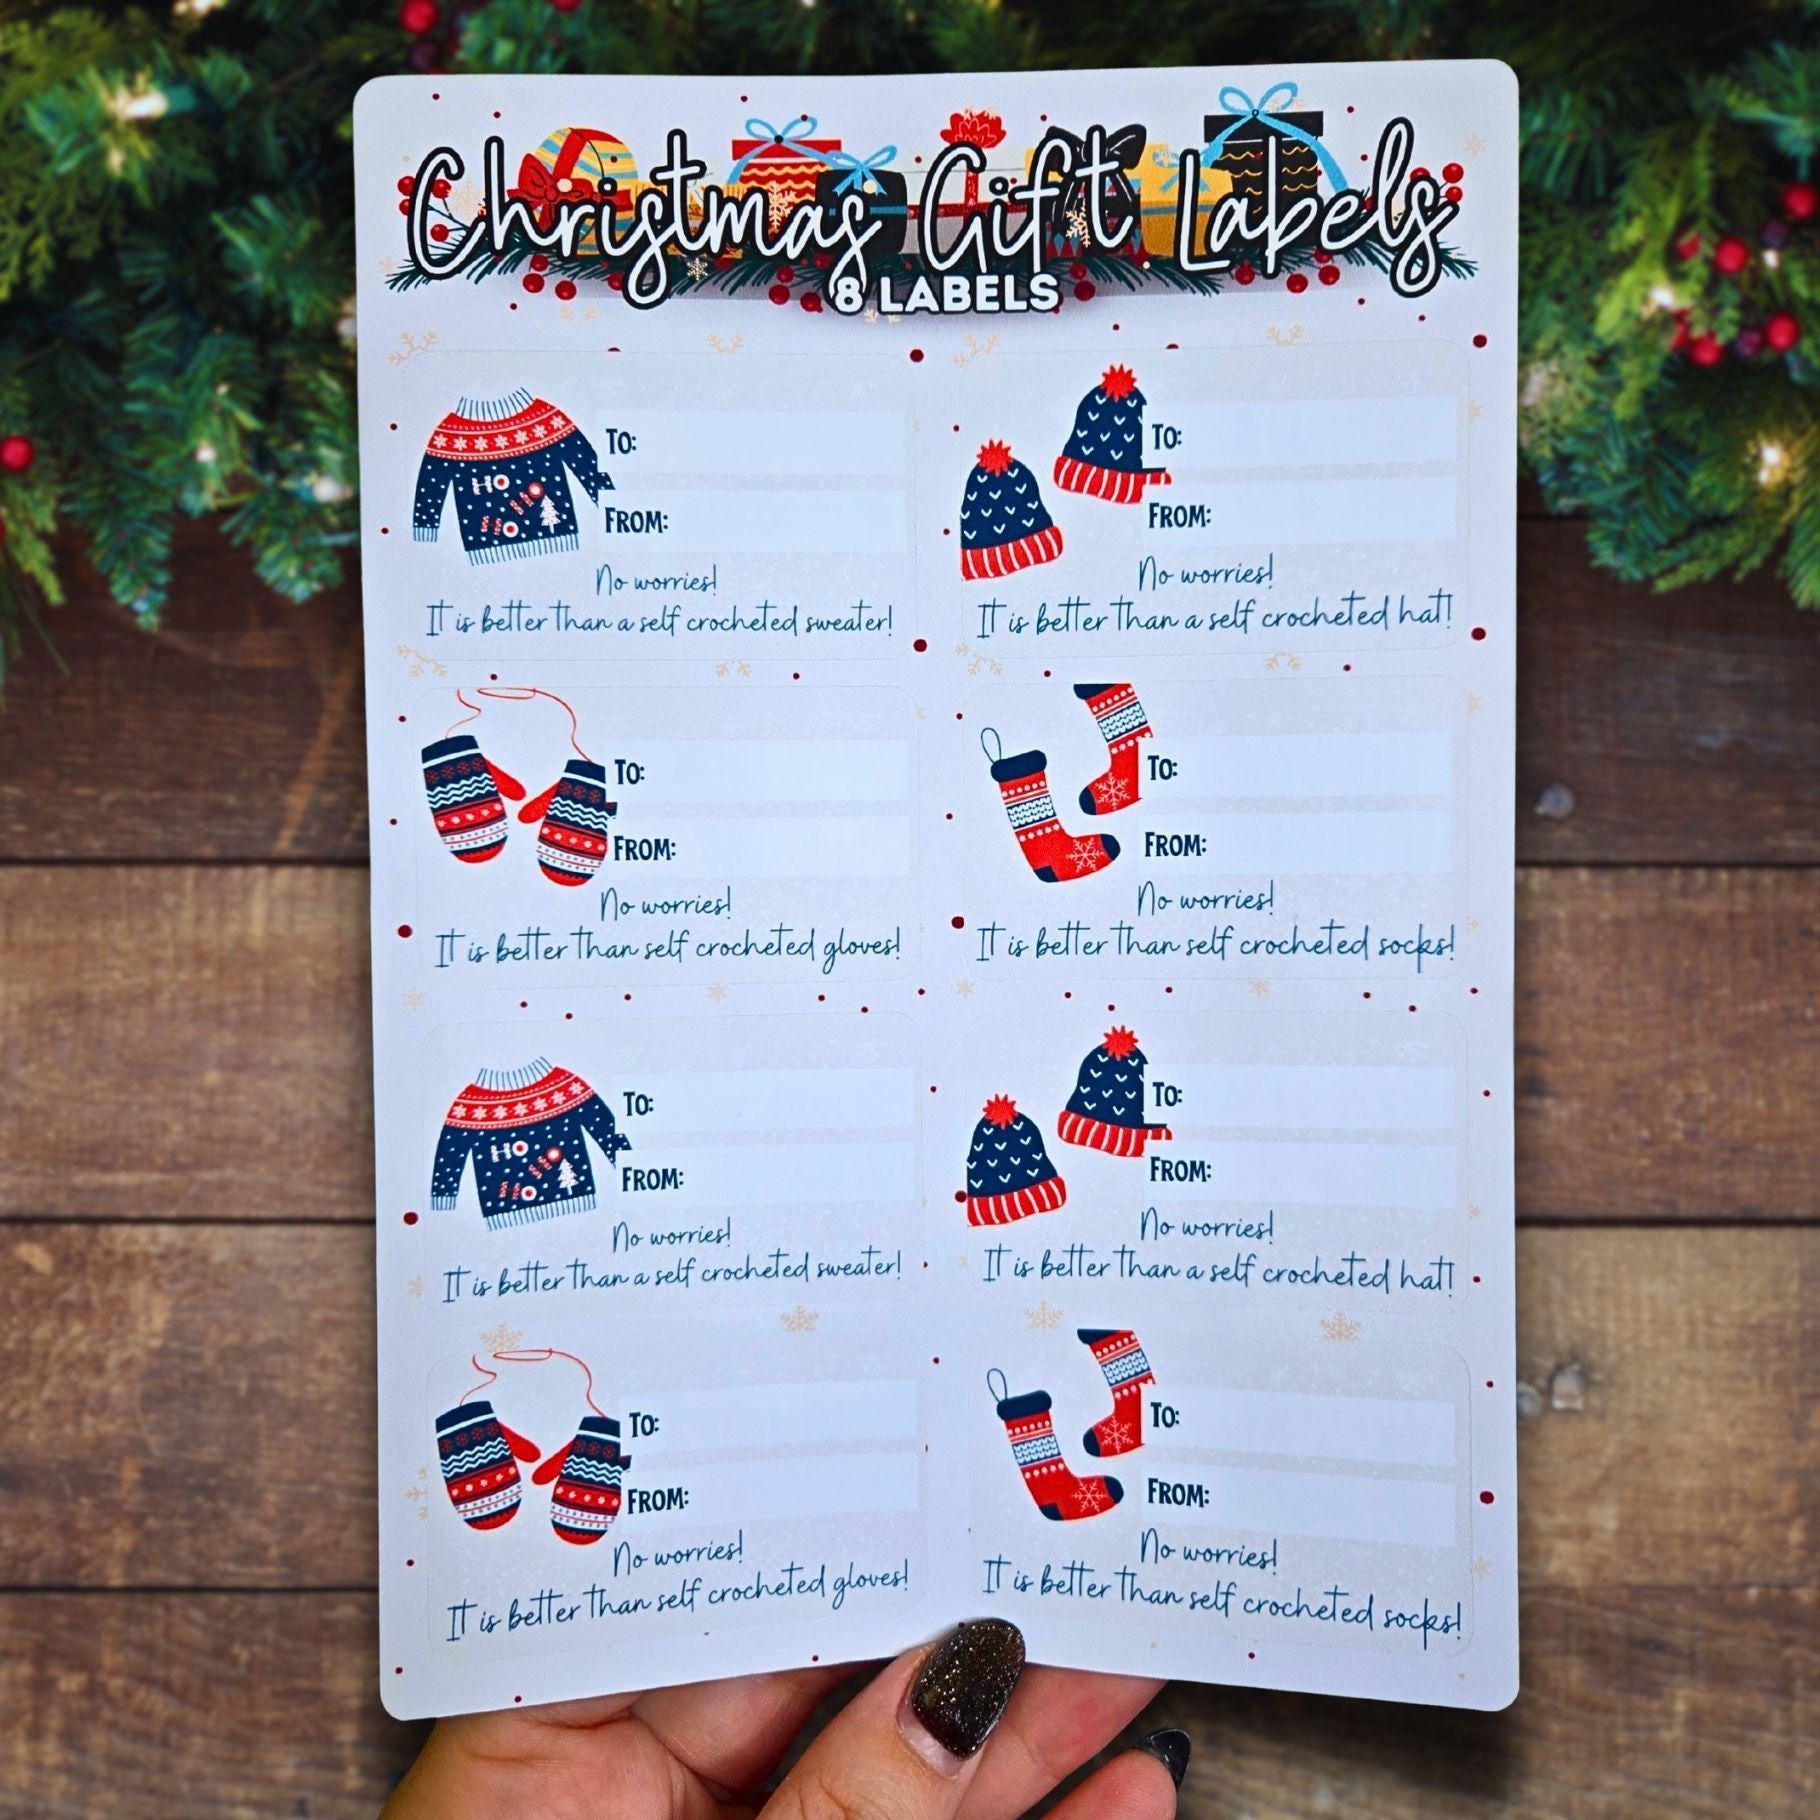 Christmas Gift Labels
8 LABELS
HO
HO
HO
TO:
FROM:
No worries!
It is better than a self crocheted sweater!
TO:
FROM:
No worries!
It is better than a self crocheted hat!
TO:
FROM:
No worries!
It is better than self crocheted gloves!
TO:
FROM:
No worries!
It is better than self crocheted socks!
HO
HO
HO
TO:
FROM:
No worries!
It is better than a self crocheted sweater!
TO:
FROM:
No worries!
It is better than a self crocheted hat!
TO:
FROM:
No worries!
It is better than self crocheted gloves!
TO:
FROM:
No worries!
It is better than self crocheted socks!